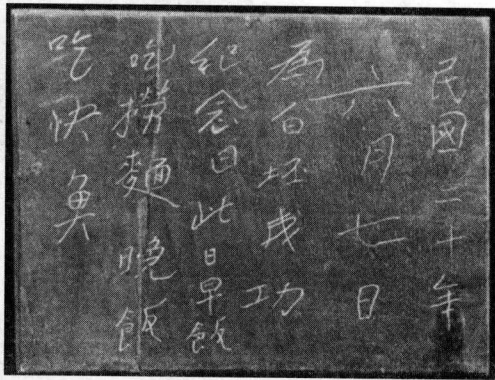 民國二十年
六月七日
為白坯成功
紀念日此日早飯
吃撈麵 晚飯
吃快魚